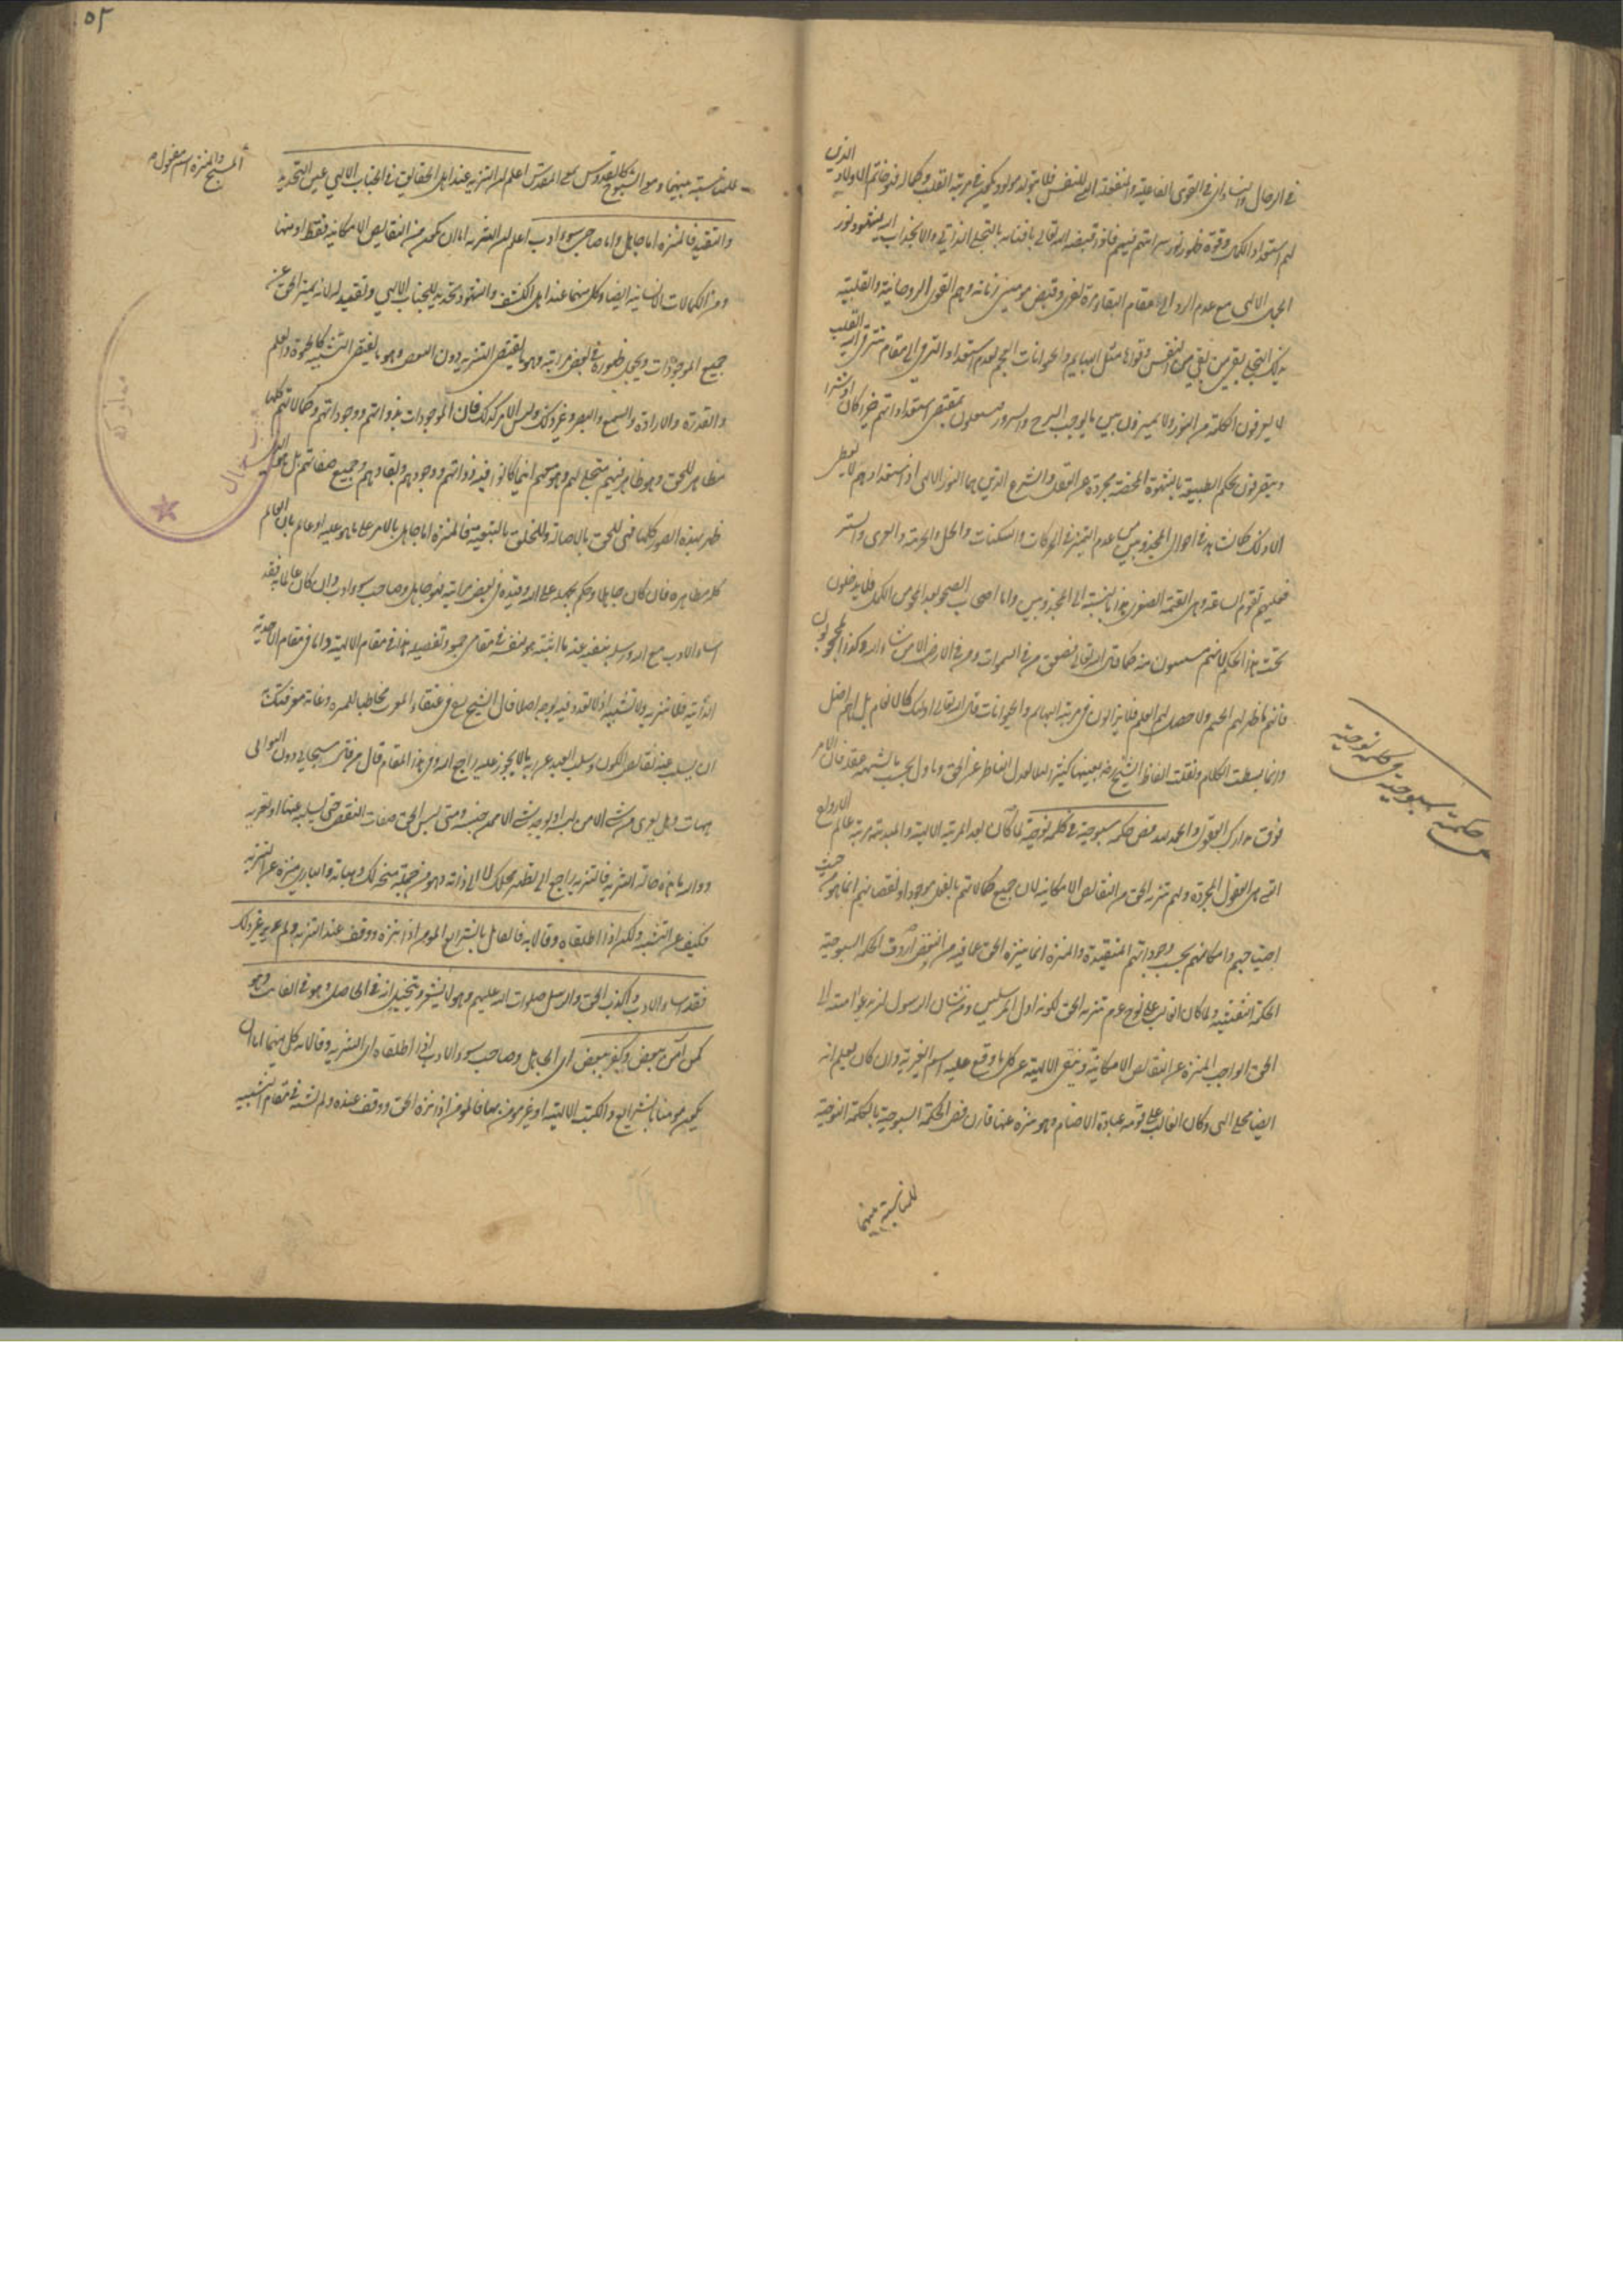 في الرجال والنساء اي في القوى الفاعلية والمنفعلة التي للنفس فلا يتولد مولود يكون في مرتبة القلب وكماله فهو خاتم الاولاد الذين
لهم استعداد الكمال وقوة ظهور نور سرايتهم فيهم فاذا قبضه الله تعالى بافنائه بالتجلي الذاتي والانجذاب اليه لشهود نور
الجمال الالهي مع عدم الرد الى مقام البقاء مرة اخرى وقبض مومني زمانه وهم القوى الروحانية والقلبية
بذلك التجلي بقي من بقي من النفس وقواها مثل البهايم والحيوانات العجم لعدم استعداد الترقي الى مقام القلب
لا يعرفون الظلمة من النور ولا يميزون بين ما يوجب الترح والسرور فيعملون بمقتضى استعداداتهم خيرا كان او شرا
ويتصرفون بحكم الطبيعة بالشهوة المحضة مجردة عن العقل والشرع الذين هما النور الالهي اذ استعدادهم لا يعطي
الا ذلك كما نشاهد في احوال المجذوبين من عدم التمييز في الحركات والسكنات والحل والحرمة والعري والستر
فعليهم تقوم الساعة وهي القيمة الصغرى هذا بالنسبة الى المجذوبين واما اصحاب الصحو بعد المحو من الكمل فلا يدخلون
تحت هذا الحكم لانهم مستثنون منه كما قال الله تعالى فصعق من في السموات ومن في الارض الا من شاء الله وكذا المحجوبون
فانهم ما ظهر لهم الحكم ولا حصل لهم العلم فلا يزالون في مرتبة البهايم والحيوانات قال الله تعالى اولئك كالانعام بل هم اضل
وانما بسطت الكلام ونقلت الفاظ الشيخ رضه بعينها كثيرا لئلا يعدل الناظر عن الحق وياول بحسب ما يشتهيه عقله فان الامر
فوق مدارك العقول والحمد لله فص حكمة سبوحية في كلمة نوحية لما كان بعد المرتبة الالهية والمبدئية مرتبة عالم الارواح
التي هي العقول المجردة ولهم تنزيه الحق من النقايص الامكانية لان جميع كمالاتهم بالفعل موجود او نقصانهم انما هو من حيث
احتياجهم وامكانهم بحسب وجوداتهم المتقيدة والمنزه انما ينزه الحق عما فيه من النقص اردف الحكمة السبوحية
الحكمة النفثية ولما كان الغالب على نوح عدم تنزيه الحق لكونه اول المرسلين ومن شان الرسول ان يدعو امته الى
الحق الواجب المنزه عن النقايص الامكانية وينفي الالهية عن كل ما وقع عليه اسم الغيرية وان كان يعلم انه
ايضا مجلى الهي وكان الغالب على قومه عبادة الاصنام وهو منزه عنها قارن فص الحكمة السبوحية بالكلمة النوحية
للمناسبة بينهما
فص حكمة سبوحية في كلمة نوحية
للمناسبة بينهما ومعنى السبوح كالقدوس بمعنى المقدس اعلم ان التنزيه عند اهل الحقايق في الجناب الالهي عين التحديد
المسبح والمنزه اسم مفعول
والتقييد فالمنزه اما جاهل واما صاحب سوء ادب اعلم ان التنزيه اما ان يكون من النقايص الامكانية فقط او منها
ومن الكمالات الانسانية ايضا وكل منهما عند اهل الكشف والشهود تحديد للجناب الالهي وتقييد له لانه يميز الحق عن
جميع الموجودات ويجعل ظهوره في بعض مراتبه وهو ما يقتضي التنزيه دون البعض وهو ما يقتضي التشبيه كالحيوة والعلم
والقدرة والارادة والسمع والبصر وغير ذلك وليس الامر كذلك فان الموجودات بذواتهم ووجوداتهم وكمالاتهم كلها
مظاهر للحق وهو ظاهر فيهم متجلي لهم وهو معهم اينما كانوا فهي ذواتهم ووجودهم وبقاؤهم وجميع صفاتهم بل هو الذي
ظهر بهذه الصور كلها فهي للحق بالاصالة وللخلق بالتبعية فالمنزه اما جاهل بالامر على ما هو عليه او عالم بان العالم
كله مظاهره فان كان جاهلا وحكم بجهله على الله وقيده في بعض مراتبه فهو جاهل وصاحب سوء ادب وان كان عالما به فقد
اساء الادب مع الله ورسله بنفيه عنه ما اثبته هو لنفسه في مقامي جمعه وتفصيله هذا في مقام الالهية واما في مقام الاحدية
الذاتية فلا تنزيه ولا تشبيه اذ لا تعدد فيه بوجه اصلا قال الشيخ رضي في عنقاء المغرب مخاطبا للمنزه وغاية معرفتك به
ان يسلب عنه نقايص الكون وسلب العبد عن ربه ما لا يجوز عليه راجع اليه وفي هذا المقام قال من قال سبحاني دون التواني
هيهات وهل يعرى من شيء الا من لبسه او يوخذ شيء الا ممن حبسه ومتى لبس الحق صفات النقص حتى يسلبه عنها او تعريه
ووالله ما هذه حالة التنزيه فالتنزيه راجع الى تطهير محلك لا الى ذاته وهو من جملة منحه لك وهباته والباري منزه عن التنزيه
فكيف عن التشبيه ولكن اذا اطلقاه وقالا به فالقايل بالشرايع المومن اذا نزه ووقف عند التنزيه ولم ير غير ذلك
فقد اساء الادب واكذب الحق والرسل صلوات الله عليهم وهو لا يشعر ويتخيل انه في الحاصل وهو في الفايت وهو
كمن آمن ببعض وكفر ببعض اي الجاهل وصاحب سوء الادب اذا اطلقاه اي التنزيه وقالا به كل منهما اما ان
يكون مومنا بالشرايع والكتب الالهية او غير مومن بها فالمومن اذا نزه الحق ووقف عنده ولم يشبه في مقام التشبيه